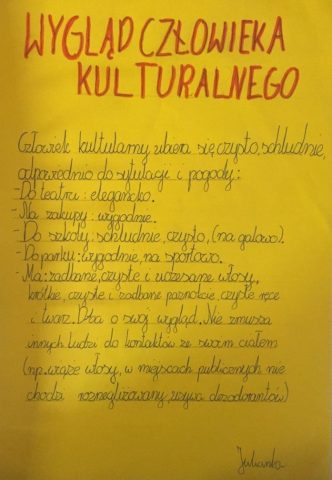 WYGLĄD CZŁOWIEKA
KULTURALNEGO
Człowiek kultularny ubiera się czysto, schludnie,
odpowiednio do sytułacji i pogody:
-Do teatru: elegancko.
-Na zakupy: wygodnie.
-Do szkoły: schludnie, czysto, (na galowo).
-Do parku: wygodnie, na sportowo.
-Ma: zadbane, czyste i uczesane włosy,
krótkie, czyste i zadbane paznokcie, czyste ręce
i twarz. Dba o swój wygląd. Nie zmusza
innych ludzi do kontaktów ze swoim ciałem
(np. wiąże włosy, w miejscach publicznych nie
chodzi roznegliżowany, używa dezodorantów)
Julianka